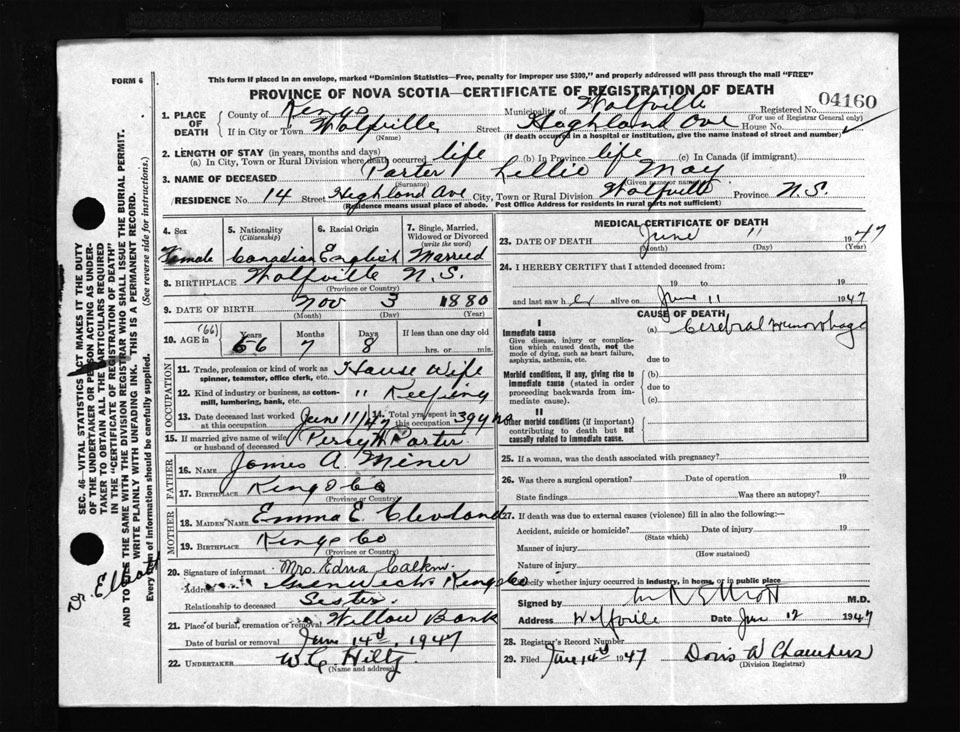 FORM 6
This form if placed in an envelope, marked "Dominion Statistics—Free, penalty for improper use $300," and properly addressed will pass through the mail "FREE"
PROVINCE OF NOVA SCOTIA—CERTIFICATE OF REGISTRATION OF DEATH
04160
1. PLACE OF DEATH County of Kings Municipality of Wolfville Registered No.
(For use of Registrar General only)
If in City or Town Wolfville Street Highland Ave House No.
(Name) (If death occurred in a hospital or institution, give the name instead of street and number)
2. LENGTH OF STAY (in years, months and days)
(a) In City, Town or Rural Division where death occurred life (b) In Province life (c) In Canada (if immigrant)
3. NAME OF DECEASED Porter Lellie May
(Surname) (Given name or names)
RESIDENCE No. 14 Street Highland Ave City, Town or Rural Division Wolfville Province N.S.
(Residence means usual place of abode. Post Office Address for residents in rural parts not sufficient)
4. Sex 5. Nationality (Citizenship) 6. Racial Origin 7. Single, Married, Widowed or Divorced (write the word)
Female Canadian English Married
8. BIRTHPLACE Wolfville N.S.
(Province or Country)
9. DATE OF BIRTH Nov 3 1880
(Month) (Day) (Year)
10. AGE in Years Months Days If less than one day old
(66) 66 7 8 hrs. or min.
OCCUPATION
11. Trade, profession or kind of work as spinner, teamster, office clerk, etc. House Wife
12. Kind of industry or business, as cotton-mill, lumbering, bank, etc. " Keeping
13. Date deceased last worked at this occupation June 11/47 14. Total yrs. spent in this occupation 39 yrs
15. If married give name of wife or husband of deceased Percy W Porter
FATHER
16. NAME James A. Miner
17. BIRTHPLACE Kings Co
(Province or Country)
MOTHER
18. MAIDEN NAME Emma E. Cleveland
19. BIRTHPLACE Kings Co
(Province or Country)
20. Signature of informant Mrs. Edna Calkin
Address Greenwich Kings Co
Relationship to deceased Sister
21. Place of burial, cremation or removal Willow Bank
Date of burial or removal June 14d, 1947
22. UNDERTAKER W.C. Hiltz
(Name and address)
MEDICAL CERTIFICATE OF DEATH
23. DATE OF DEATH June 11 1947
(Month) (Day) (Year)
24. I HEREBY CERTIFY that I attended deceased from:
19 to 19
and last saw her alive on June 11 1947
CAUSE OF DEATH
I
Immediate cause (a) Cerebral Hemorrhage
Give disease, injury or complication which caused death, not the mode of dying, such as heart failure, asphyxia, asthenia, etc.
due to
Morbid conditions, if any, giving rise to immediate cause (stated in order proceeding backwards from immediate cause).
(b)
due to
(c)
II
Other morbid conditions (if important) contributing to death but not causally related to immediate cause.
25. If a woman, was the death associated with pregnancy?
26. Was there a surgical operation? Date of operation 19
State findings Was there an autopsy?
27. If death was due to external causes (violence) fill in also the following:—
Accident, suicide or homicide? Date of injury 19
(State which)
Manner of injury
(How sustained)
Nature of injury
Specify whether injury occurred in industry, in home, or in public place
Signed by M.D.
Address Wolfville Date Jun 12 1947
28. Registrar's Record Number
29. Filed June 14d 1947 Doris W Chambers
(Division Registrar)
SEC. 46—VITAL STATISTICS ACT MAKES IT THE DUTY
OF THE UNDERTAKER OR PERSON ACTING AS UNDER-
TAKER TO OBTAIN ALL THE PARTICULARS REQUIRED
IN THE "CERTIFICATE OF REGISTRATION OF DEATH"
AND TO FILE THE SAME WITH THE DIVISION REGISTRAR WHO SHALL ISSUE THE BURIAL PERMIT.
WRITE PLAINLY WITH UNFADING INK. THIS IS A PERMANENT RECORD.
Every item of information should be carefully supplied. (See reverse side for instructions.)
Elliott
52